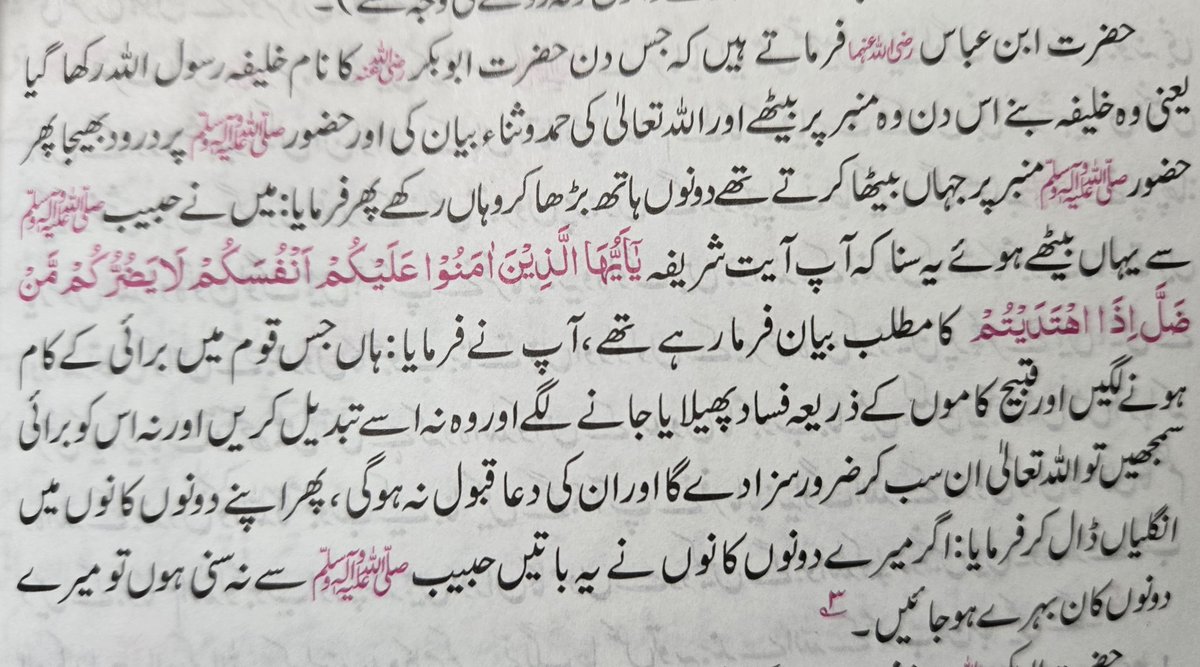 حضرت ابن عباس رضی اللہ عنہما فرماتے ہیں کہ جس دن حضرت ابوبکر رضی اللہ عنہ کا نام خلیفہ رسول اللہ رکھا گیا
یعنی وہ خلیفہ بنے اس دن وہ منبر پر بیٹھے اور اللہ تعالیٰ کی حمد و ثناء بیان کی اور حضور صلی اللہ علیہ وآلہ وسلم پر درود بھیجا پھر
حضور صلی اللہ علیہ وآلہ وسلم منبر پر جہاں بیٹھا کرتے تھے دونوں ہاتھ بڑھا کر وہاں رکھے پھر فرمایا: میں نے حبیب صلی اللہ علیہ وآلہ وسلم
سے یہاں بیٹھے ہوئے یہ سنا کہ آپ آیت شریفہ یٰۤاَیُّهَا الَّذِیْنَ اٰمَنُوْا عَلَیْكُمْ اَنْفُسَكُمْ لَا یَضُرُّكُمْ مَّنْ
ضَلَّ اِذَا اهْتَدَیْتُمْ کا مطلب بیان فرما رہے تھے، آپ نے فرمایا: ہاں جس قوم میں برائی کے کام
ہونے لگیں اور قبیح کاموں کے ذریعہ فساد پھیلایا جانے لگے اور وہ نہ اسے تبدیل کریں اور نہ اس کو برائی
سمجھیں تو اللہ تعالیٰ ان سب کر ضرور سزا دے گا اور ان کی دعا قبول نہ ہوگی، پھر اپنے دونوں کانوں میں
انگلیاں ڈال کر فرمایا: اگر میرے دونوں کانوں نے یہ باتیں حبیب صلی اللہ علیہ وآلہ وسلم سے نہ سنی ہوں تو میرے
دونوں کان بہرے ہو جائیں۔ ۳